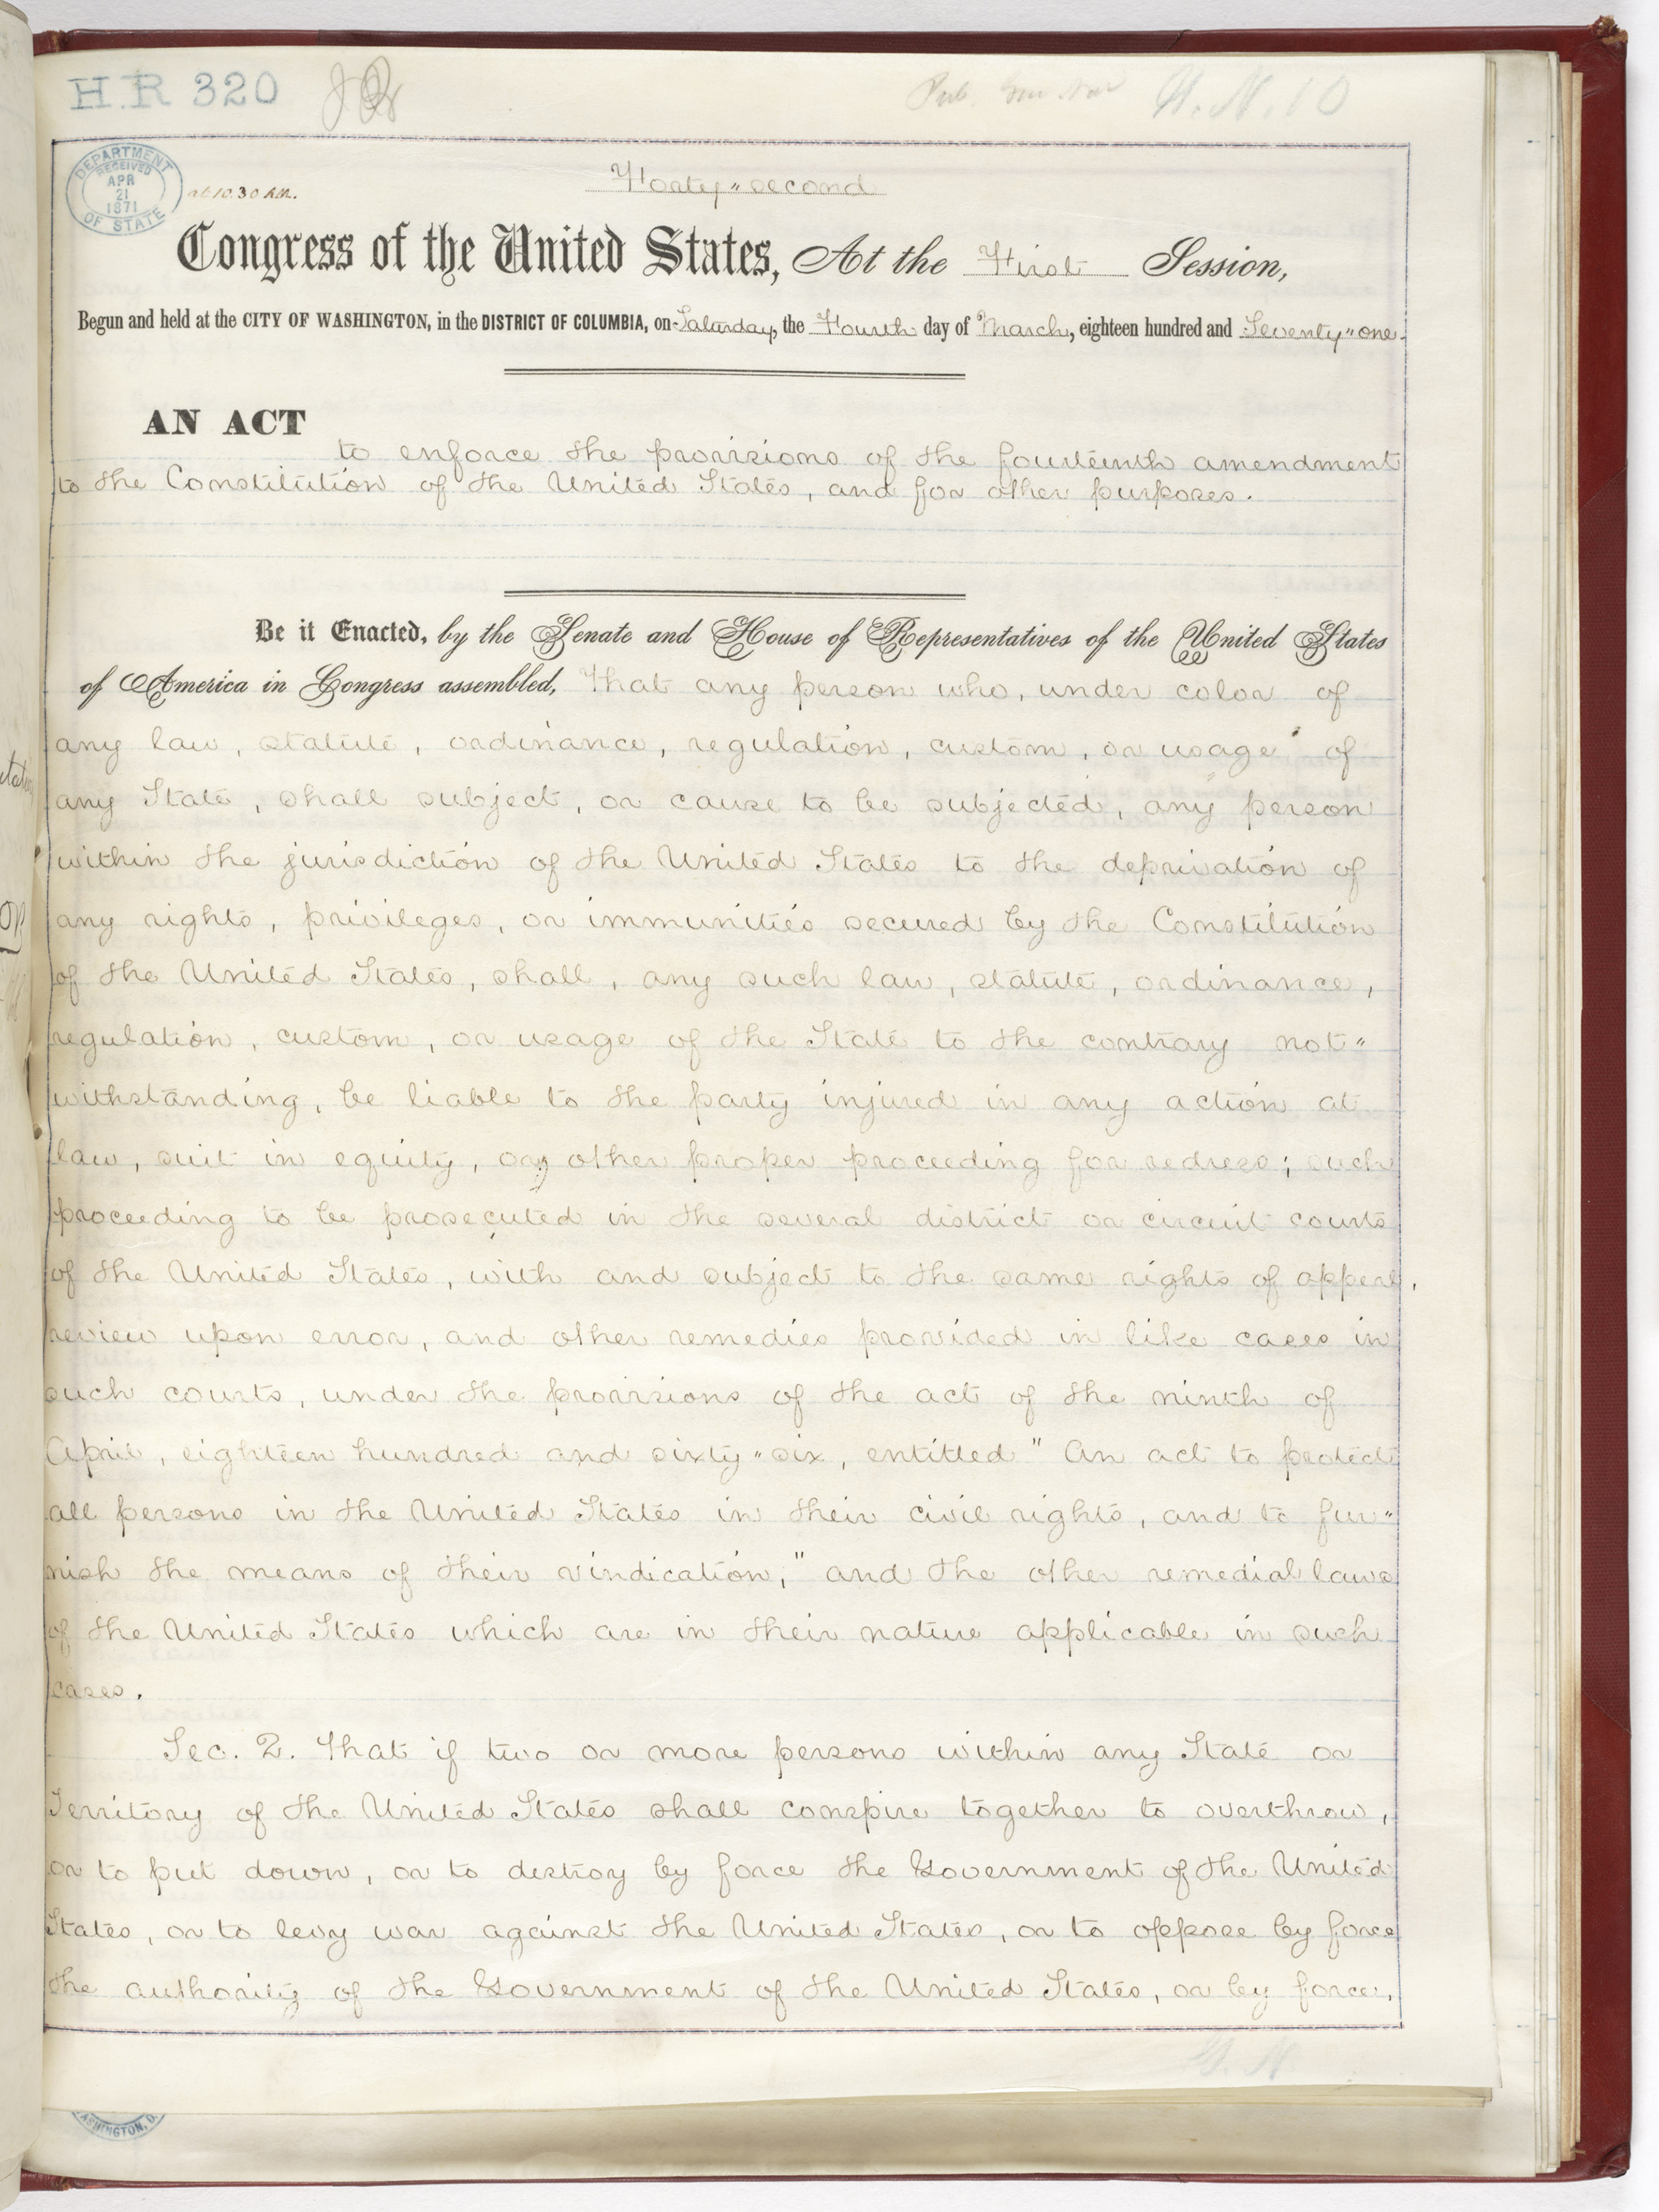 H.R 320
Pub. H.N. 10
DEPARTMENT OF STATE
RECEIVED
APR
21
1871
at 10.30 A.M.
Forty-second
Congress of the United States, At the First Session,
Begun and held at the CITY OF WASHINGTON, in the DISTRICT OF COLUMBIA, on Saturday, the Fourth day of March, eighteen hundred and Seventy-one.
AN ACT
to enforce the provisions of the fourteenth amendment
to the Constitution of the United States, and for other purposes.
Be it Enacted, by the Senate and House of Representatives of the United States
of America in Congress assembled, That any person who, under color of
any law, statute, ordinance, regulation, custom, or usage of
any State, shall subject, or cause to be subjected, any person
within the jurisdiction of the United States to the deprivation of
any rights, privileges, or immunities secured by the Constitution
of the United States, shall, any such law, statute, ordinance,
regulation, custom, or usage of the State to the contrary not-
withstanding, be liable to the party injured in any action at
law, suit in equity, or other proper proceeding for redress; such
proceeding to be prosecuted in the several district or circuit courts
of the United States, with and subject to the same rights of appeal,
review upon error, and other remedies provided in like cases in
such courts, under the provisions of the act of the ninth of
April, eighteen hundred and sixty-six, entitled "An act to protect
all persons in the United States in their civil rights, and to fur-
nish the means of their vindication;" and the other remedial laws
of the United States which are in their nature applicable in such
cases.
Sec. 2. That if two or more persons within any State or
Territory of the United States shall conspire together to overthrow,
or to put down, or to destroy by force the Government of the United
States, or to levy war against the United States, or to oppose by force
the authority of the Government of the United States, or by force,